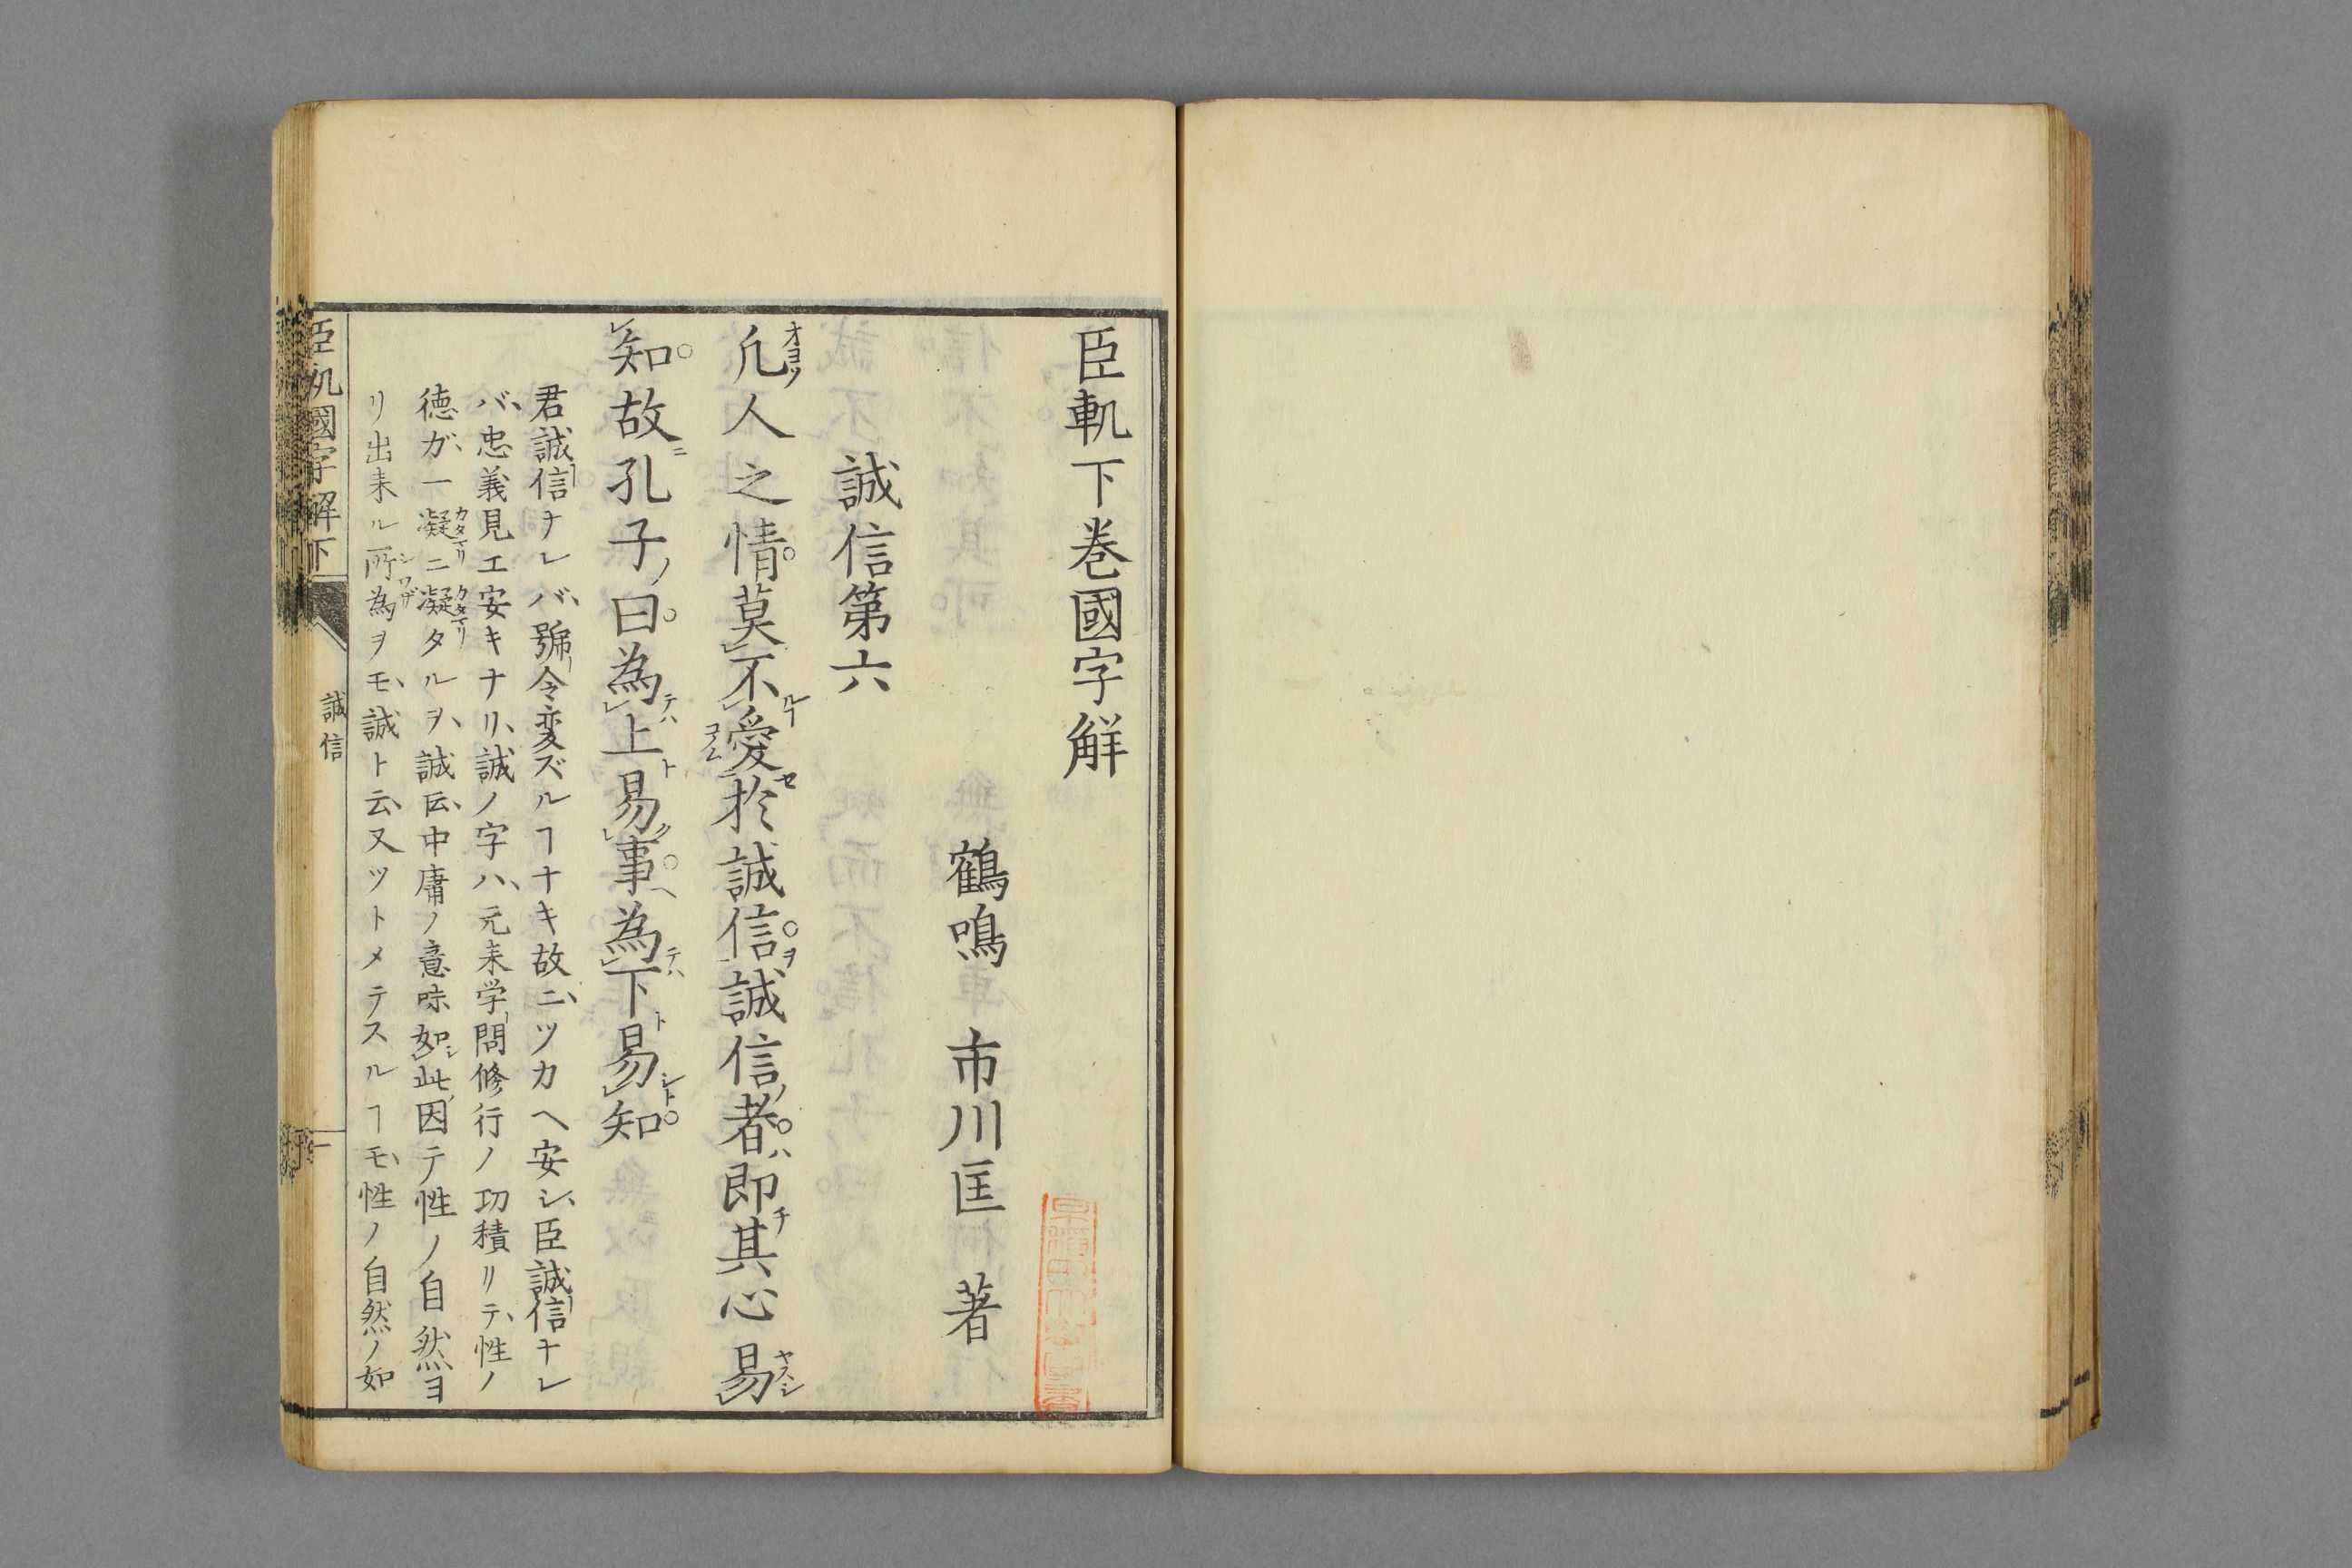 臣軓下巻國字觧
鶴鳴 市川匡 著
誠信第六
凡人之情莫不愛於誠信誠信者即其心易
知故孔子曰為上易事為下易知
君誠信ナレバ、號令変ズルヿナキ故ニ、ツカヘ安シ、臣誠信ナレ
バ、忠義見エ安キナリ、誠ノ字ハ、元来学問修行ノ功積リテ、性ノ
徳ガ、一凝ニ凝タルヲ、誠云、中庸ノ意味如此、因テ性ノ自然ヨ
リ出来ル所為ヲモ、誠ト云、又ツトメテスルヿモ、性ノ自然ノ如
臣軓國字解下
誠信
一